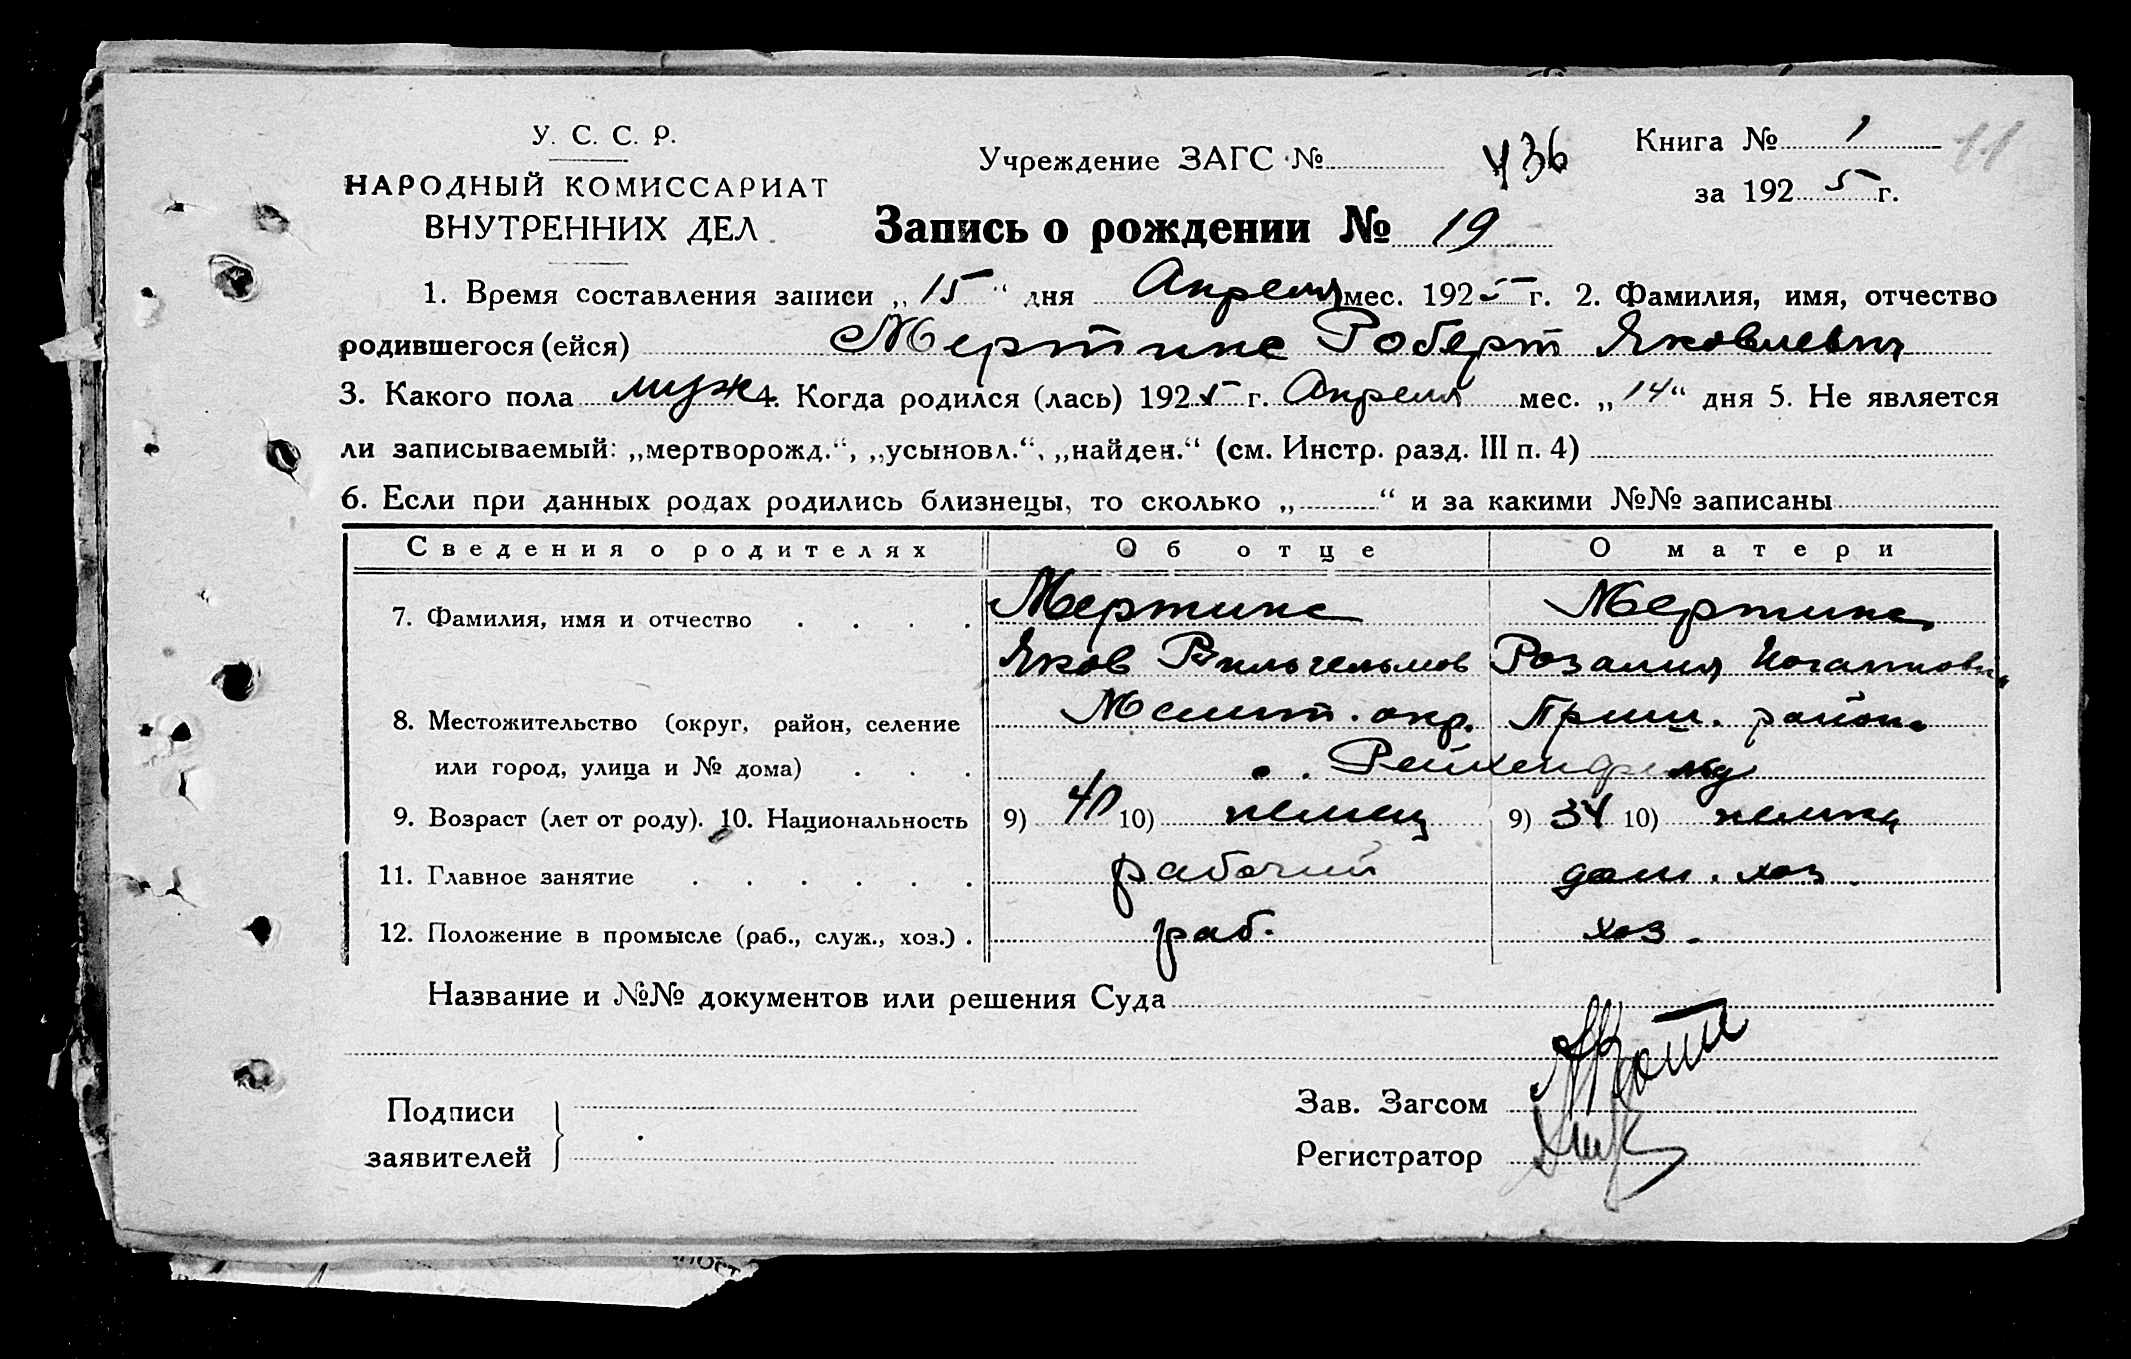 У. С. С. Р.
НАРОДНЫЙ КОМИССАРИАТ
ВНУТРЕННИХ ДЕЛ
Учреждение ЗАГС № 436
Книга № 1
11
за 1925 г.
Запись о рождении № 19
1. Время составления записи „15“ дня Апреля мес. 1925 г. 2. Фамилия, имя, отчество
родившегося (ейся) Мертинс Роберт Яковлевич
3. Какого пола муж 4. Когда родился (лась) 1925 г. Апреля мес. „14“ дня 5. Не является
ли записываемый: „мертворожд.“, „усыновл.“, „найден.“ (см. Инстр. разд. III п. 4)
6. Если при данных родах родились близнецы, то сколько „ “ и за какими №№ записаны
Сведения о родителях Об отце О матери
7. Фамилия, имя и отчество . . . . Мертинс Мертинс
Яков Вильгельмов Розалия
8. Местожительство (округ, район, селение Мелит. окр. Приш. район.
или город, улица и № дома) . . . Рейхенфельд
9. Возраст (лет от роду). 10. Национальность 9) 40 10) немец 9) 34 10) немка
11. Главное занятие . . . . . . рабочий дом. хоз.
12. Положение в промысле (раб., служ., хоз.) . раб. хоз.
Название и №№ документов или решения Суда
Подписи
заявителей
Зав. Загсом
Регистратор